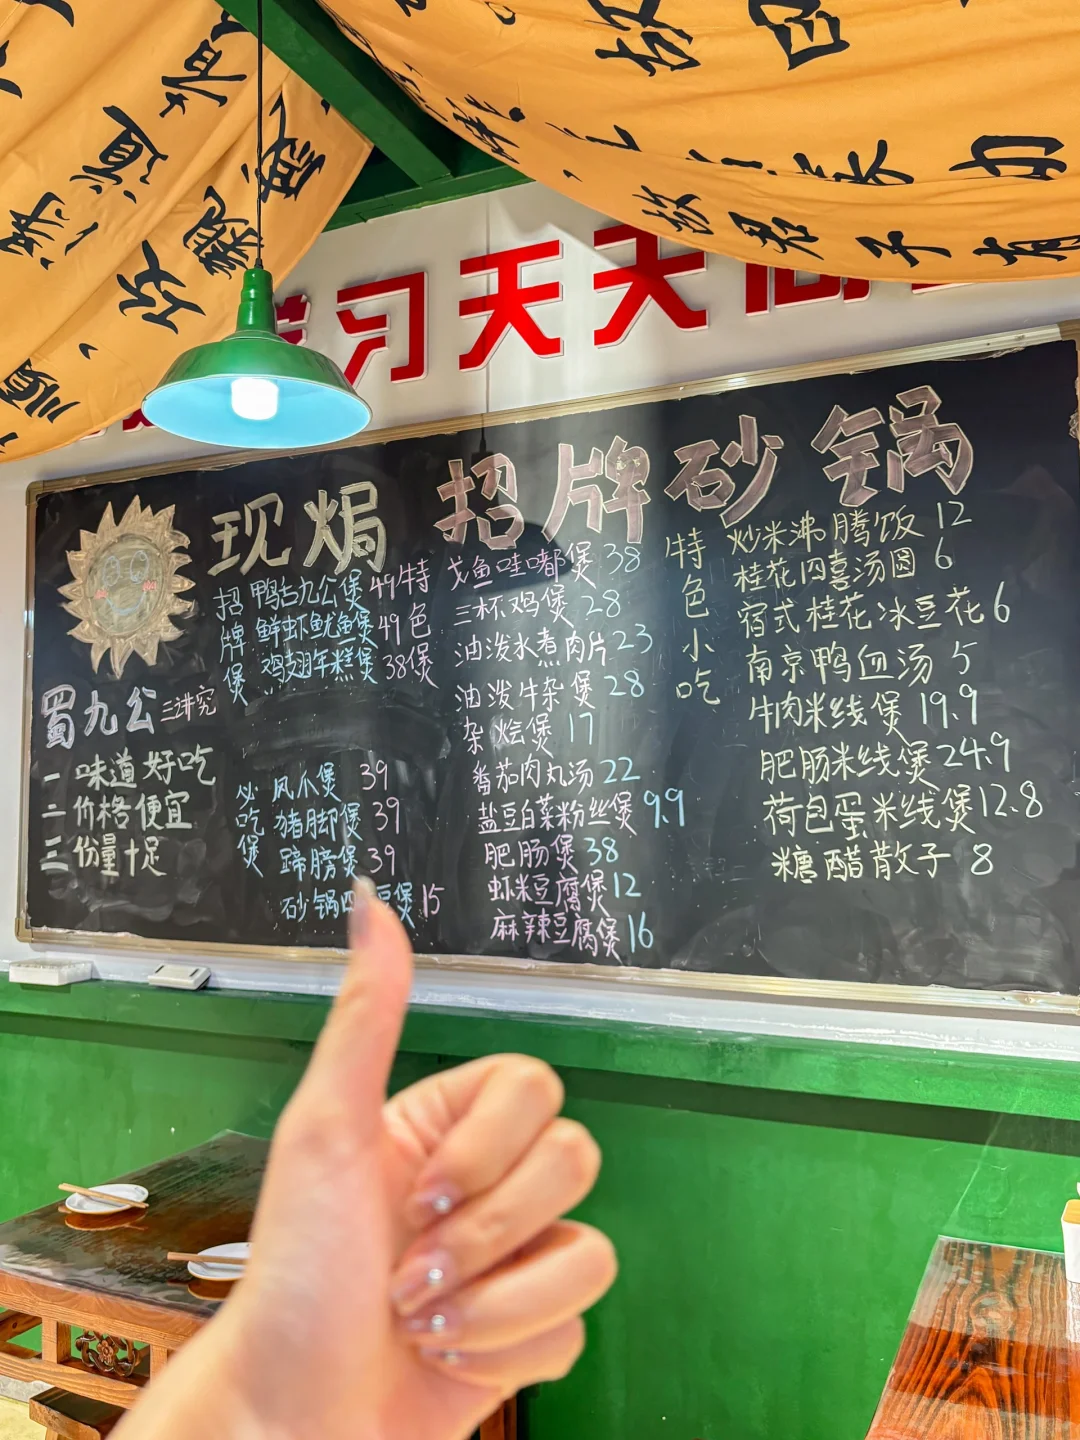 习天天
现焗 招牌砂锅
招牌煲
鸭舌九公煲 49
鲜虾鱿鱼煲 49
鸡翅年糕煲 38
蜀九公 三讲究
一 味道好吃
二 价格便宜
三 份量十足
必吃煲
凤爪煲 39
猪脚煲 39
蹄膀煲 39
砂锅四豆煲 15
特色煲
戈鱼哇嘟煲 38
三杯鸡煲 28
油泼水煮肉片 23
油泼牛杂煲 28
杂烩煲 17
番茄肉丸汤 22
盐豆白菜粉丝煲 9.9
肥肠煲 38
虾米豆腐煲 12
麻辣豆腐煲 16
特色小吃
炒米沸腾饭 12
桂花四喜汤圆 6
宿式桂花冰豆花 6
南京鸭血汤 5
牛肉米线煲 19.9
肥肠米线煲 24.9
荷包蛋米线煲 12.8
糖醋散子 8